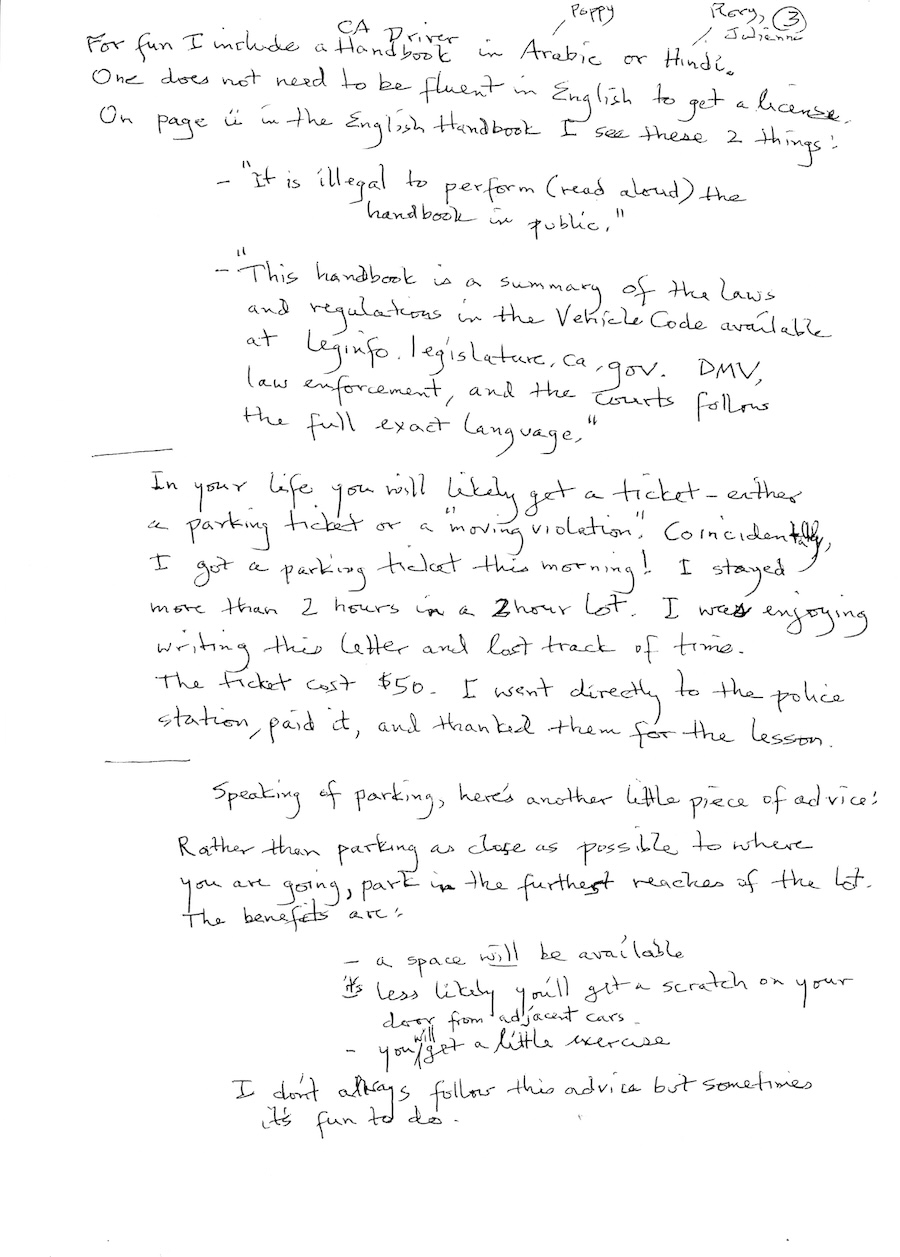 Poppy
Rory, ③
CA Driver
Julienne
For fun I include a Handbook in Arabic or Hindi.
One does not need to be fluent in English to get a license.
On page ii in the English Handbook I see these 2 things:
- "It is illegal to perform (read aloud) the
handbook in public."
- "This handbook is a summary of the laws
and regulations in the Vehicle Code available
at leginfo.legislature.ca.gov. DMV,
law enforcement, and the courts follow
the full exact language."
In your life you will likely get a ticket - either
a parking ticket or a "moving violation". Coincidentally,
I got a parking ticket this morning! I stayed
more than 2 hours in a 2 hour lot. I was enjoying
writing this letter and lost track of time.
The ticket cost $50. I went directly to the police
station, paid it, and thanked them for the lesson.
Speaking of parking, here's another little piece of advice:
Rather than parking as close as possible to where
you are going, park in the furthest reaches of the lot.
The benefits are:
- a space will be available
it's less likely you'll get a scratch on your
door from adjacent cars.
- you will get a little exercise
I don't always follow this advice but sometimes
it's fun to do.